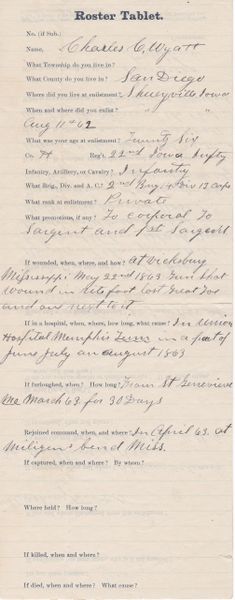 Roster Tablet.
No. (if Sub.)
Name, Charles C. Wyatt
What Township do you live in?
What County do you live in? San Diego
Where did you live at enlistment? Shueyville Iowa
When and where did you enlist? " "
Aug 11th 62
What was your age at enlistment? Twenty Six
Co. H Reg't. 22nd Iowa Infty
Infantry, Artillery, or Cavalry? Infantry
What Brig., Div. and A. C.? 2nd Brig 14 Div 13 Corps
What rank at enlistment? Private
What promotions, if any? To corporal To
Sargent and 1st Sargent
If wounded, when, where, and how? at Vicksburg
Mississippi May 22nd 1863 Gun Shot
Wound in foot lost Great Toe
and one next to it
If in a hospital, when, where, how long, what cause? In Union
Hospital Memphis in a part of
June July an august 1863
If furloughed, when? How long? From St Genevieve
Mo March 63. for 30 Days
Rejoined command, when, and where? In April 63. at
Miligens bend Miss.
If captured, when and where? By whom?
Where held? How long?
If killed, when and where?
If died, when and where? What cause?